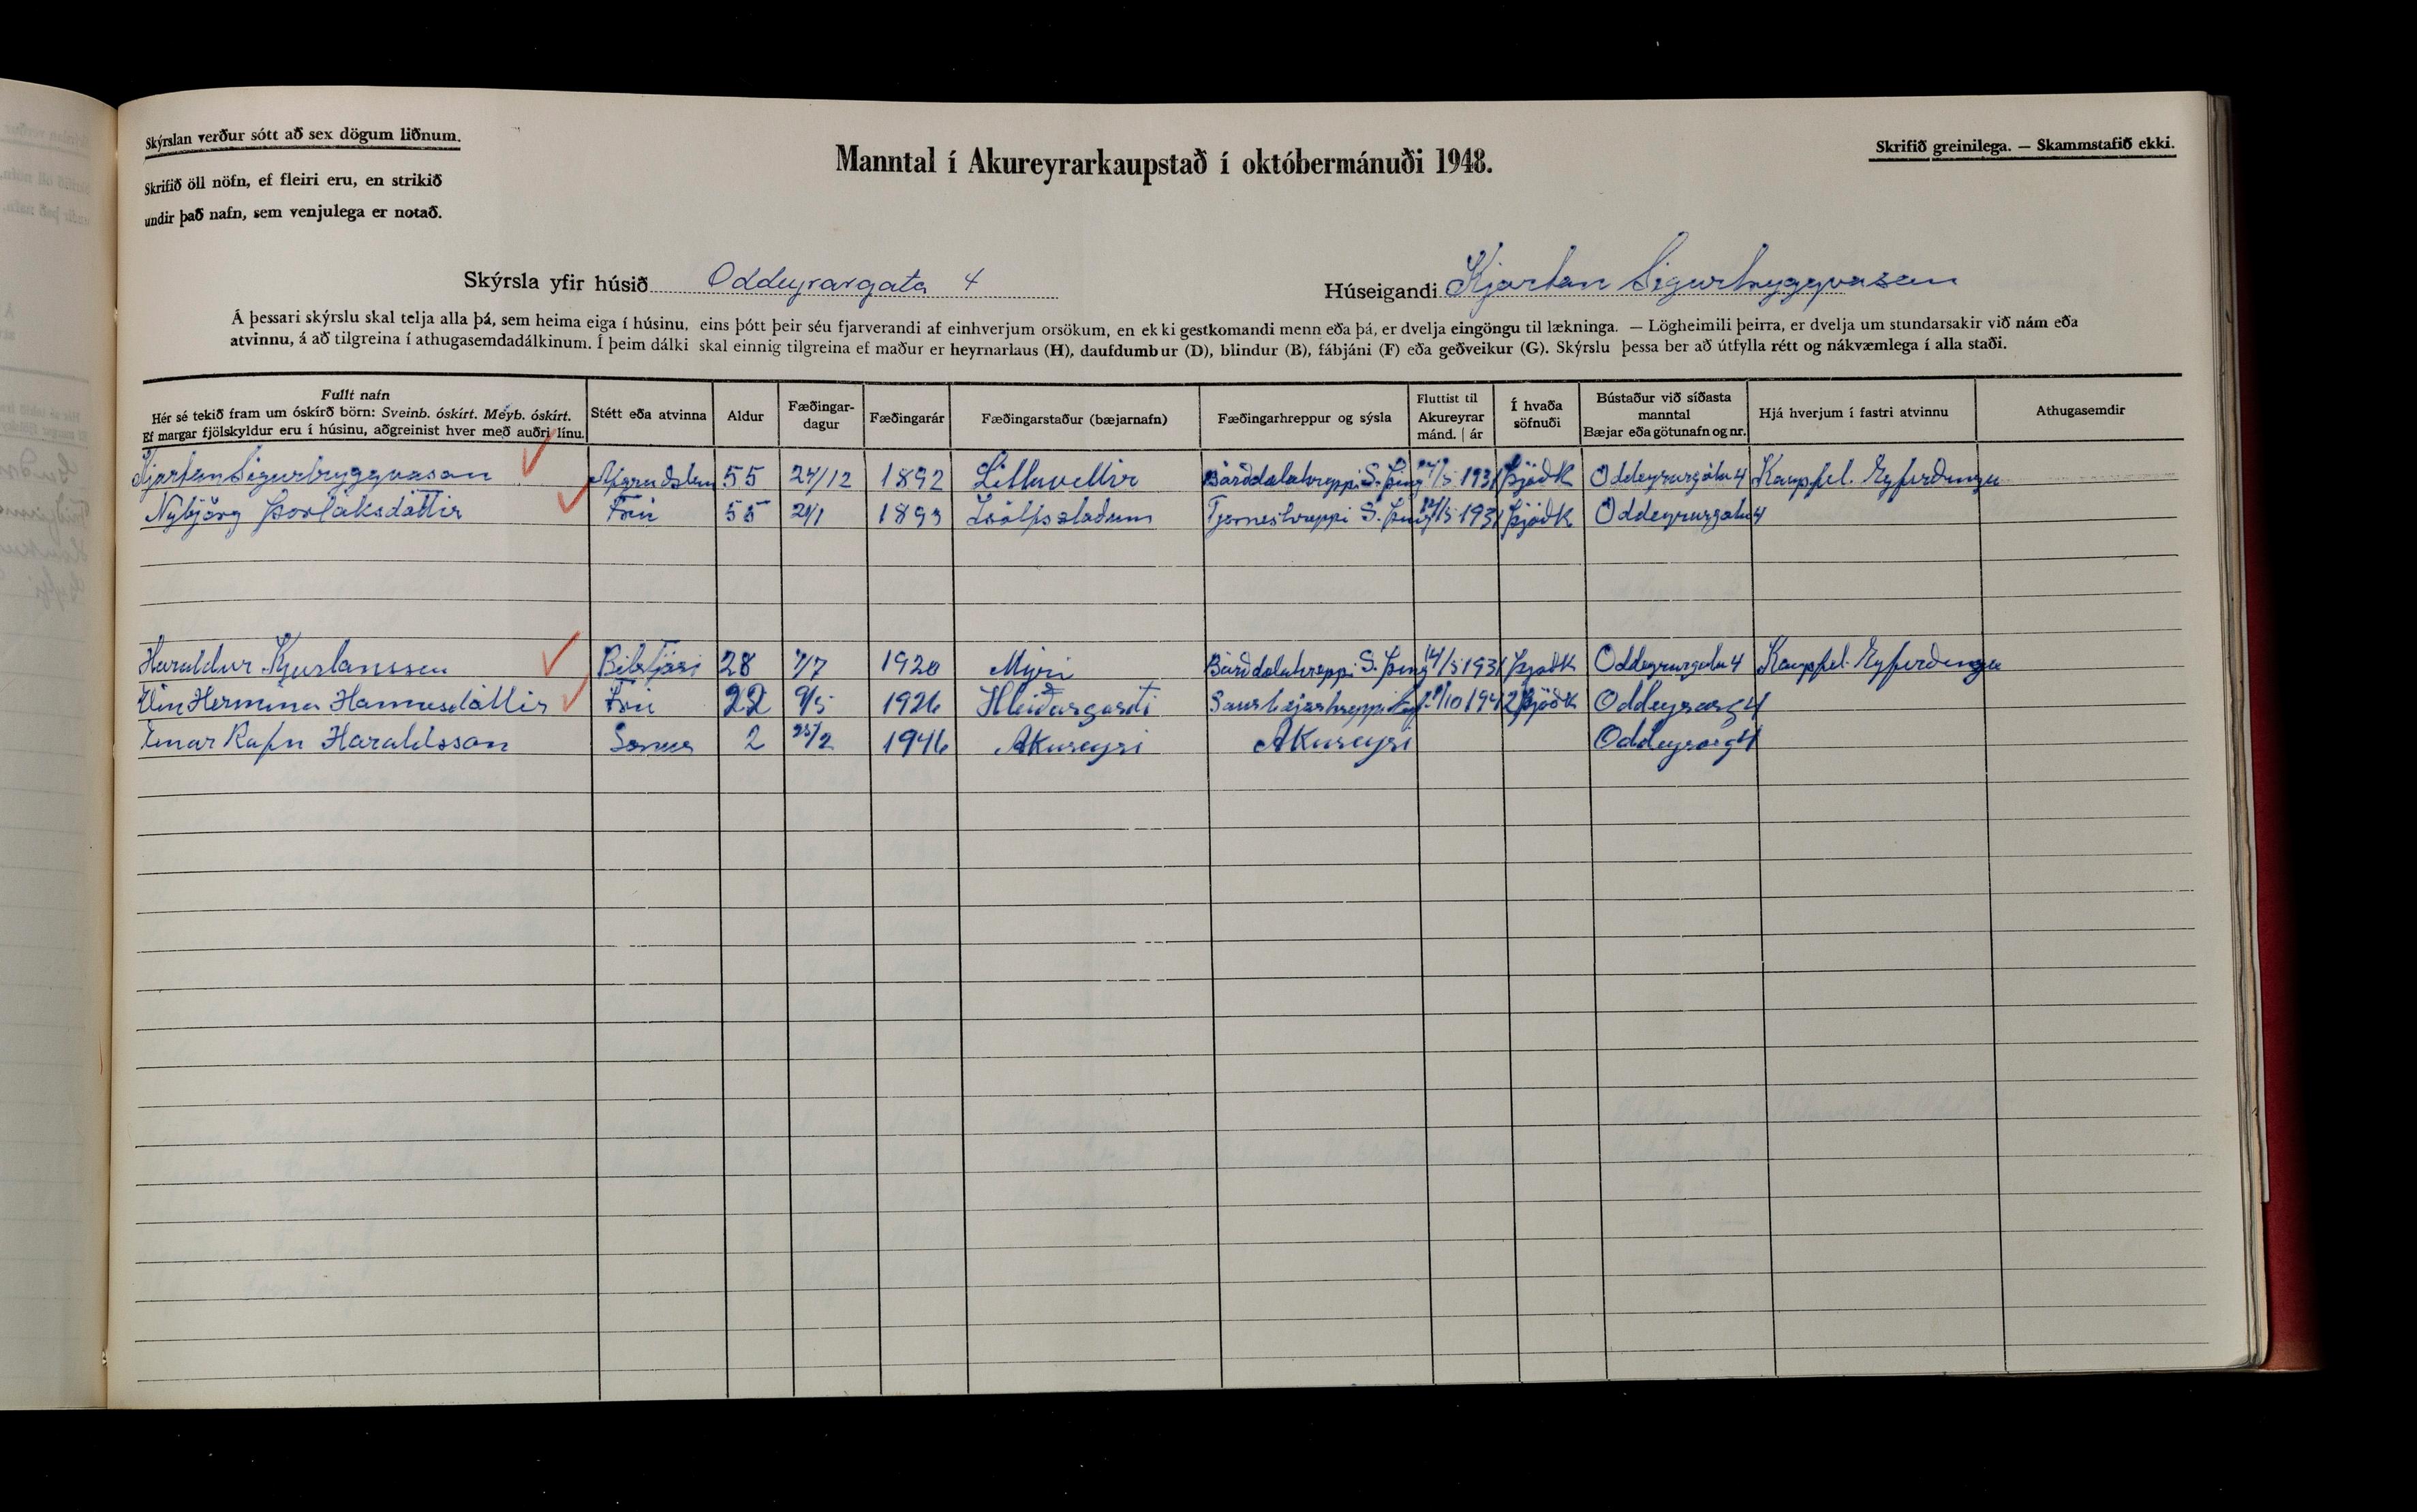 Skýrslan verður sótt að sex dögum liðnum.
Skrifið öll nöfn, ef fleiri eru, en strikið
undir það nafn, sem venjulega er notað.
Manntal í Akureyrarkaupstað í októbermánuði 1948.
Skrifið greinilega. — Skammstafið ekki.
Skýrsla yfir húsið Oddeyrargata 4
Húseigandi Kjartan Sigurtryggvason
Á þessari skýrslu skal telja alla þá, sem heima eiga í húsinu, eins þótt þeir séu fjarverandi af einhverjum orsökum, en ekki gestkomandi menn eða þá, er dvelja eingöngu til lækninga. — Lögheimili þeirra, er dvelja um stundarsakir við nám eða
atvinnu, á að tilgreina í athugasemdadálkinum. Í þeim dálki skal einnig tilgreina ef maður er heyrnarlaus (H), daufdumbur (D), blindur (B), fábjáni (F) eða geðveikur (G). Skýrslu þessa ber að útfylla rétt og nákvæmlega í alla staði.
Fullt nafn
Hér sé tekið fram um óskírð börn: Sveinb. óskírt. Meyb. óskírt.
Ef margar fjölskyldur eru í húsinu, aðgreinist hver með auðri línu.
Stétt eða atvinna
Aldur
Fæðingar-
dagur
Fæðingarár
Fæðingarstaður (bæjarnafn)
Fæðingarhreppur og sýsla
Fluttist til
Akureyrar
mánd. | ár
Í hvaða
söfnuði
Bústaður við síðasta
manntal
Bæjar eða götunafn og nr.
Hjá hverjum í fastri atvinnu
Athugasemdir
Kjartan Sigurtryggvason 55 24/12 1892 Litluvellir Bárðdælahreppi S. Þing 1931 Þjóðk Oddeyrargötu 4 Kaupfél. Eyfirðinga
Nýbjörg Þorláksdóttir Frú 55 21/1 1893 Ísólfsstaðum Tjörneshreppi S. Þing 1931 Þjóðk Oddeyrargötu 4
Haraldur Kjartansson Bílstjóri 28 7/7 1920 Mýri Bárðdælahreppi S. Þing 14/5 1931 Þjóðk Oddeyrargötu 4 Kaupfél. Eyfirðinga
Elín Hermína Hannesdóttir Frú 22 9/5 1926 Hleiðargarði Saurbæjarhreppi Eyf. /10 1942 Þjóðk Oddeyrarg 4
Einar Rafn Haraldsson Sonur 2 25/2 1946 Akureyri Akureyri Oddeyrarg 4